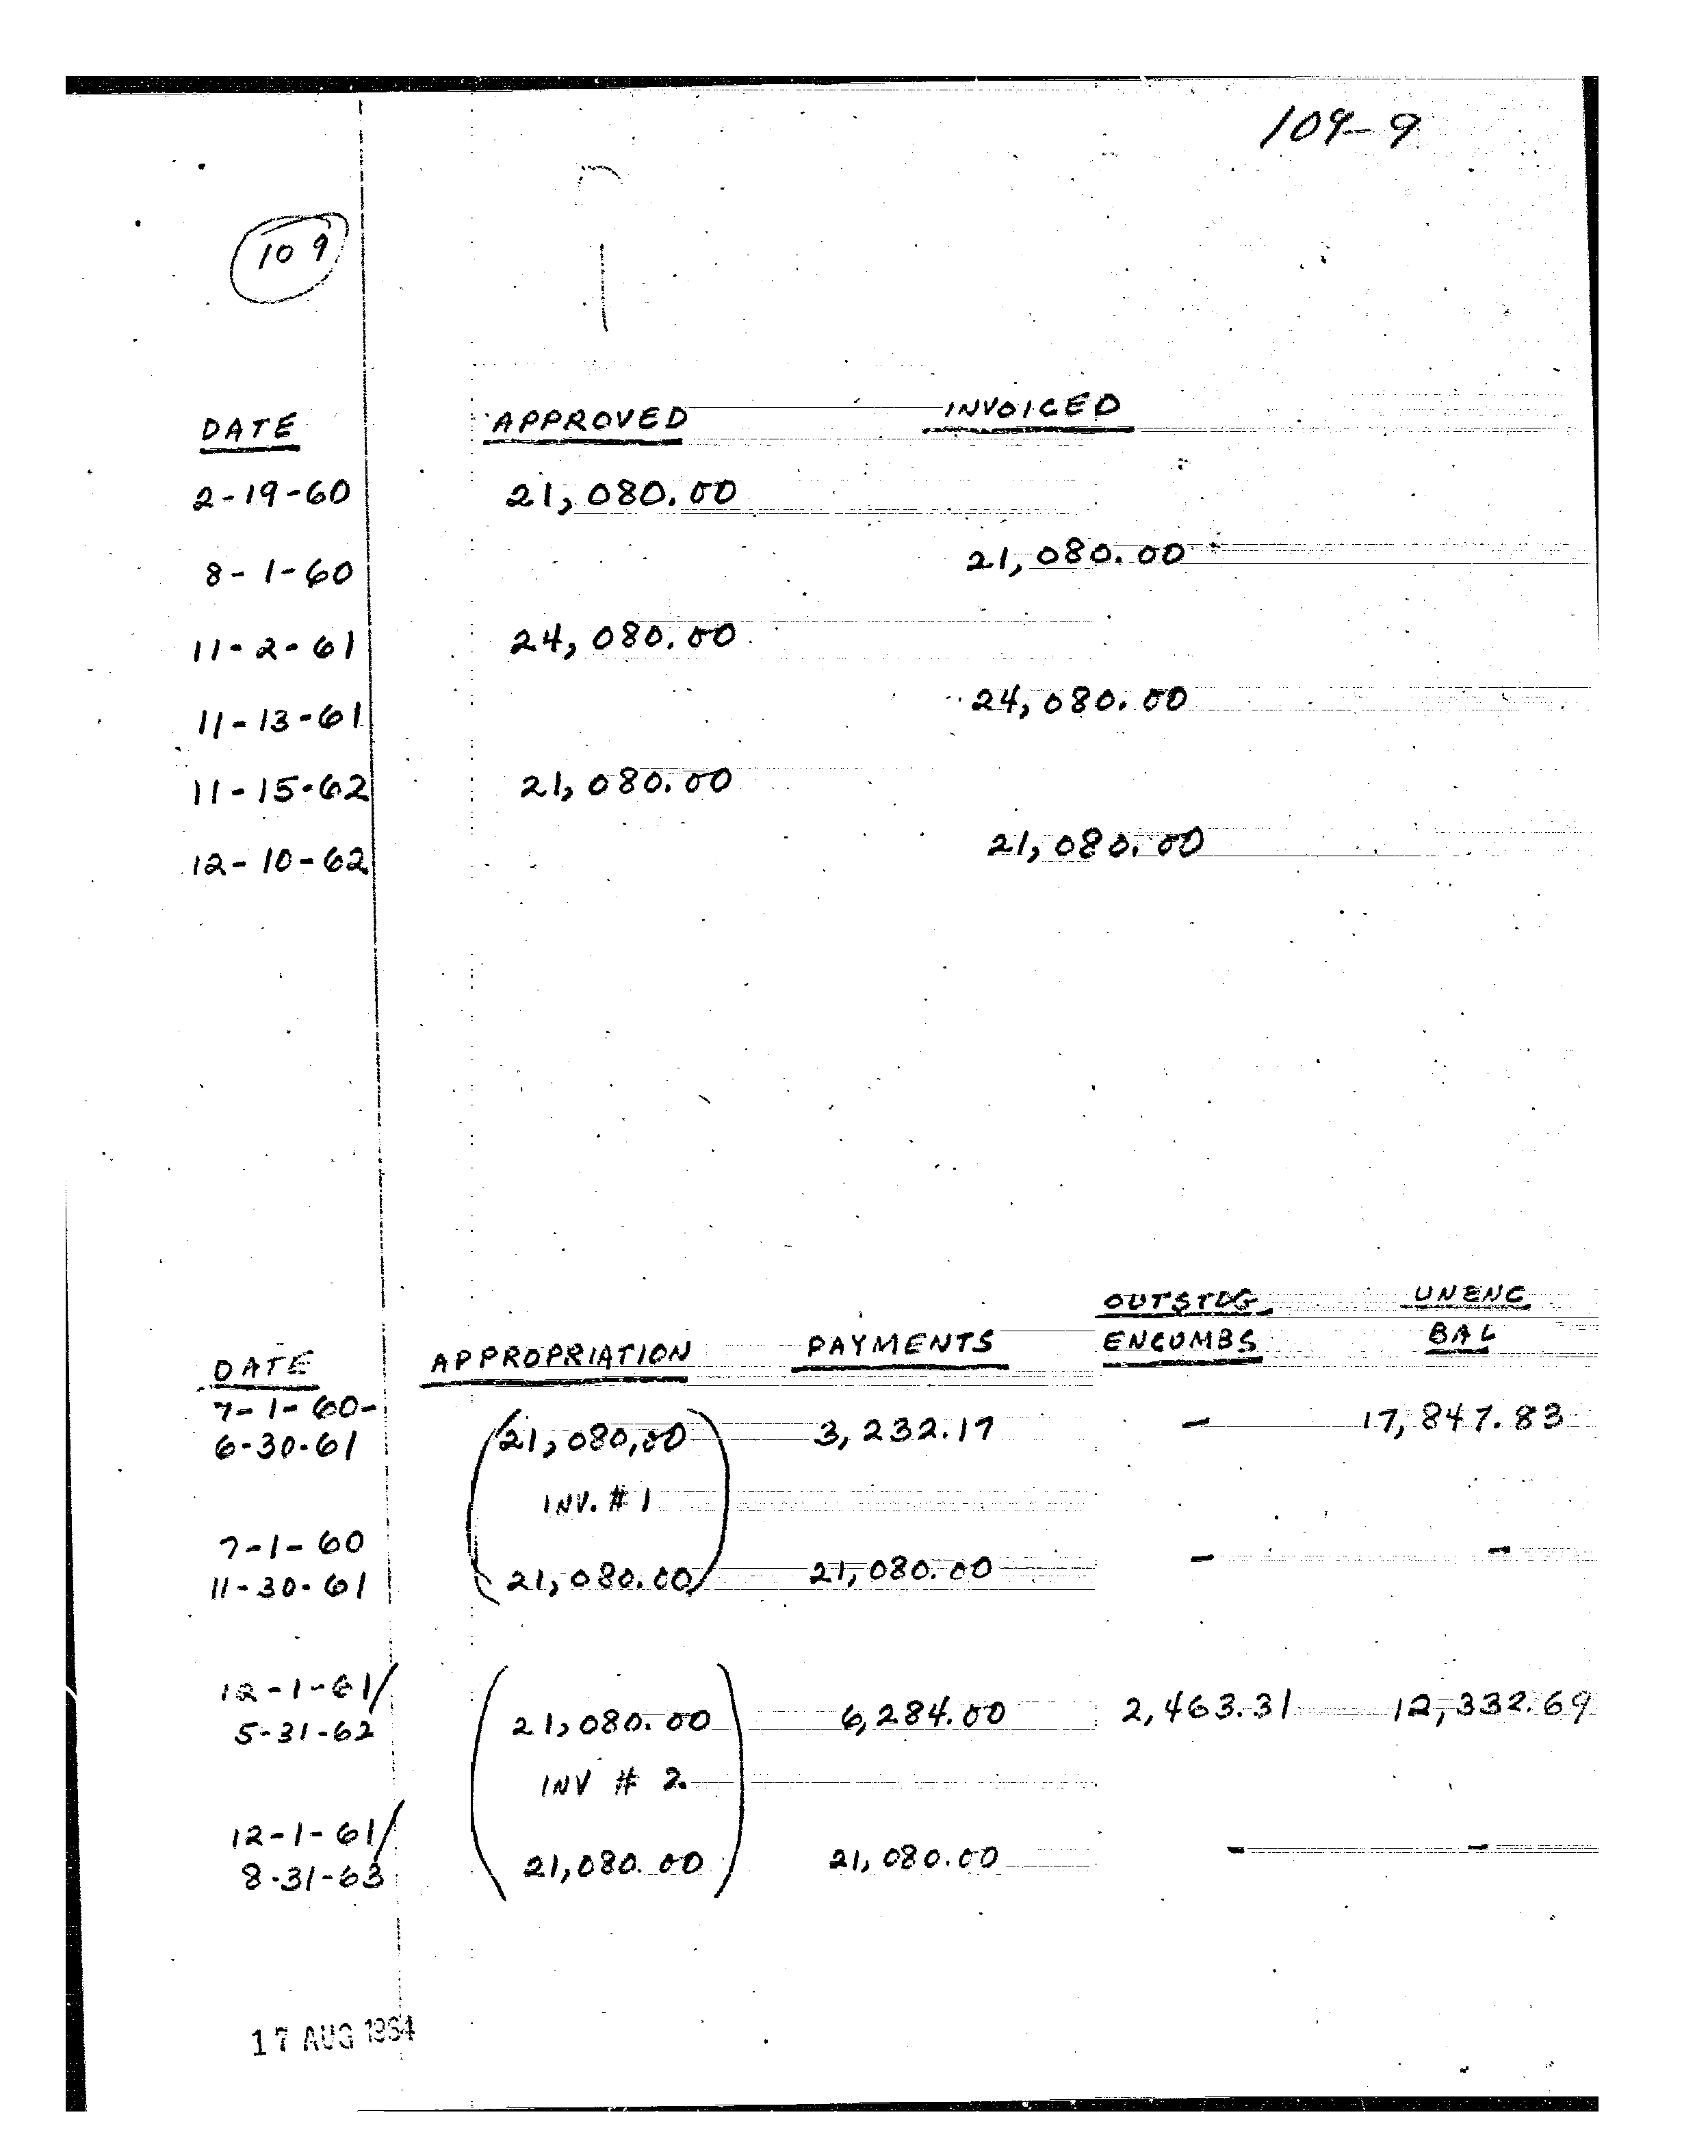 109-9
109
DATE APPROVED INVOICED
2-19-60 21,080.00
8-1-60 21,080.00
11-2-61 24,080.00
11-13-61 24,080.00
11-15-62 21,080.00
12-10-62 21,080.00
OUTSTDG UNENC
DATE APPROPRIATION PAYMENTS ENCUMBS BAL
7-1-60-
6-30-61 (21,080.00) 3,232.17 — 17,847.83
INV. #1
7-1-60
11-30-61 21,080.00 21,080.00 — —
12-1-61/
5-31-62 (21,080.00) 6,284.00 2,463.31 12,332.69
INV # 2
12-1-61/
8-31-63 21,080.00 21,080.00 — —
17 AUG 1964